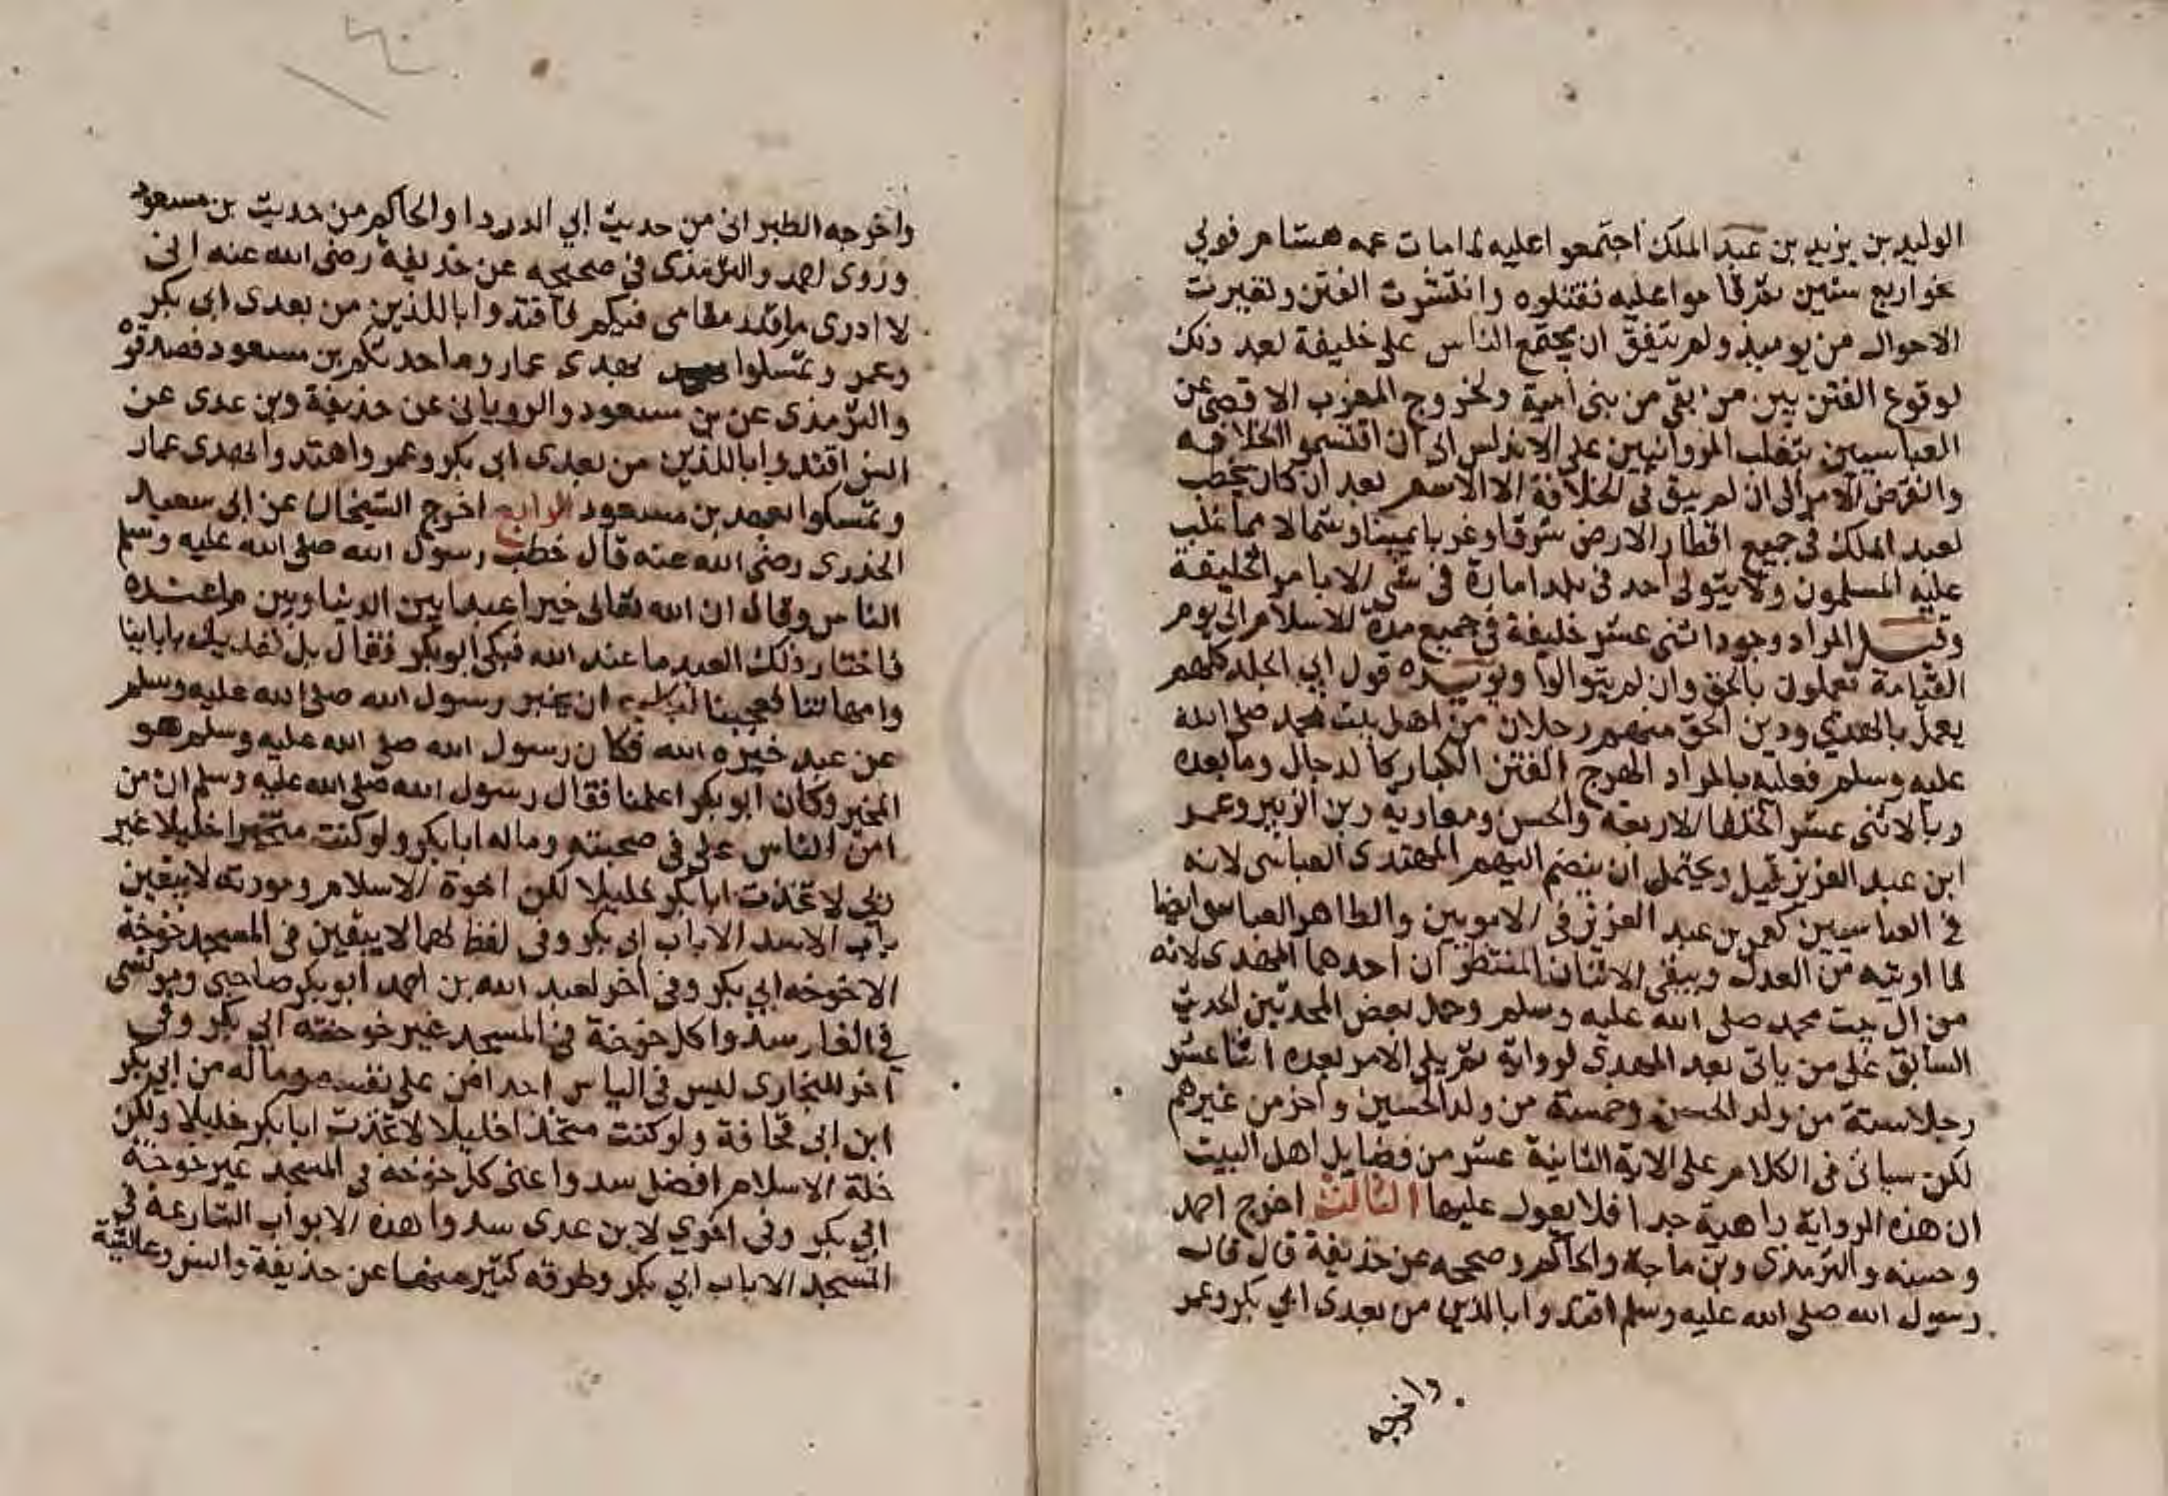 الوليد بن يزيد بن عبد الملك اجتمعوا عليه لما مات عمه هشام فولي
نحو اربع سنين ثم قاموا عليه فقتلوه وانتشرت الفتن وتغيرت
الاحوال من يوميذ ولم يتفق ان يجتمع الناس على خليفة بعد ذلك
لوقوع الفتن بين من بقي من بني امية ولخروج المغرب الاقصى عن
العباسيين بتغلب المروانيين على الاندلس الى ان اقتسموا الخلافه
وانقرض الامر الى ان لم يبق في الخلافة الا الاسم بعد ان كان يخطب
لعبد الملك في جميع اقطار الارض شرقا وغربا يمينا وشمالا مما غلب
عليه المسلمون ولا يتولى احد في بلد امارة في شى الا بامر الخليفة
وقيل المراد وجود اثنى عشر خليفة في جميع مدة الاسلام الى يوم
القيامة يعملون بالحق وان لم يتوالوا ويويده قول ابي الجلد كلهم
يعمل بالهدي ودين الحق منهم رجلان من اهل بيت محمد صلى الله
عليه وسلم فعليه بالمراد الهرج الفتن الكبار كالدجال وما بعده
وبالاثنى عشر الخلفا الاربعة والحسن ومعاوية وبن الزبير وعمر
ابن عبد العزيز قيل ويحتمل ان ينضم اليهم المهتدى العباسى لانه
في العباسيين كعمر بن عبد العزيز في الامويين والطاهر العباسى ايضا
لما اوتيه من العدل ويبقى الاثنان المنتظران احدهما المهدى لانه
من ال بيت محمد صلى الله عليه وسلم وحمل بعض المحدثين الحديث
السابق على من ياتى بعد المهدي لرواية ثم يلي الامر بعده اثنا عشر
رجلا ستة من ولد الحسن وخمسة من ولد الحسين واخر من غيرهم
لكن سياتى في الكلام على الاية الثانية عشر من فضايل اهل البيت
ان هذه الرواية واهية جدا فلا يعول عليها الثالث اخرج احمد
وحسنه والترمذى وبن ماجة والحاكم وصححه عن حذيفة قال قال
رسول الله صلى الله عليه وسلم اقتدوا بالذين من بعدى ابي بكر وعمر
واخرجه
واخرجه الطبرانى من حديث ابي الدرداء والحاكم من حديث بن مسعود
وروى احمد والترمذى في صحيحه عن حذيفة رضى الله عنه انى
لا ادرى ما قدر مقامى فيكم فاقتدوا باللذين من بعدى ابى بكر
وعمر وتمسلوا بهدى عمار وما حدثكم بن مسعود فصدقوه
والترمذى عن بن مسعود والرويانى عن حذيفة وبن عدى عن
انس اقتدوا باللذين من بعدى ابى بكر وعمر واهتدوا بهدى عمار
وتمسكوا بعهد بن مسعود الرابع اخرج الشيخان عن ابى سعيد
الخدرى رضى الله عنه قال خطب رسول الله صلى الله عليه وسلم
الناس وقال ان الله تعالى خير عبدا بين الدنيا وبين ما عنده
فاختار ذلك العبد ما عند الله فبكى ابو بكر فقال بل نفديك بابائنا
وامهاتنا فعجبنا لبكايه ان يخبر رسول الله صلى الله عليه وسلم
عن عبد خيره الله فكان رسول الله صلى الله عليه وسلم هو
المخير وكان ابو بكر اعلمنا فقال رسول الله صلى الله عليه وسلم ان من
امن الناس على في صحبته وماله ابا بكر ولو كنت متخذا خليلا غير
ربى لاتخذت ابا بكر خليلا لكن اخوة الاسلام ومودته لا يبقين
باب الا سد الا باب ابى بكر وفى لفظ لهما لا يبقين فى المسجد خوخة
الا خوخه ابي بكر وفي اخر لعبد الله بن احمد ابو بكر صاحبى ومونسى
في الغار سدوا كل خوخة في المسجد غير خوخته ابي بكر وفي
اخر للبخارى ليس في الناس احد امن على نفسه وماله من ابي بكر
ابن ابى قحافة ولو كنت متخذا خليلا لاتخذت ابا بكر خليلا ولكن
خلة الاسلام افضل سدوا عنى كل خوخة في المسجد غير خوخة
ابي بكر وفى اخري لابن عدى سدوا هذه الابواب الشارعة في
المسجد الا باب ابي بكر وطرقه كثير منها عن حذيفة وانس وعائشة